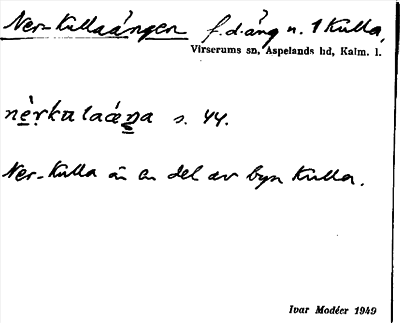 Ner-Kullaängen f.d. äng n. 1 Kulla,
Virserums sn, Aspelands hd, Kalm. l.
s. 44.
Ner-Kulla är en del av byn Kulla.
Ivar Modéer 1949